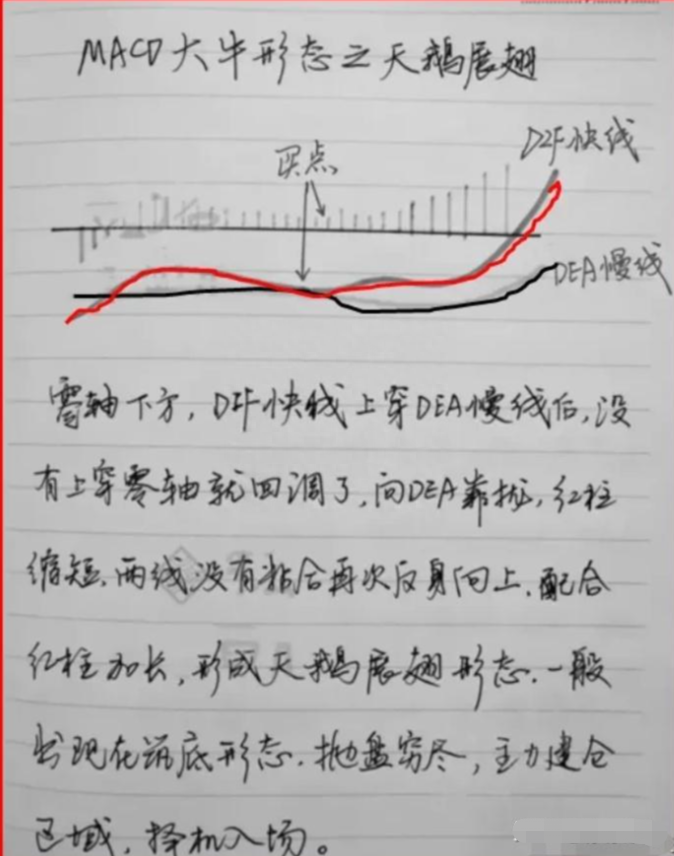 MACD大牛形态之天鹅展翅
DIF快线
买点
DEA慢线
零轴下方，DIF快线上穿DEA慢线后，没
有上穿零轴就回调了，向DEA靠拢，红柱
缩短，两线没有粘合再次反身向上，配合
红柱加长，形成天鹅展翅形态，一般
出现在筑底形态，抛盘穷尽，主力建仓
区域，择机入场。